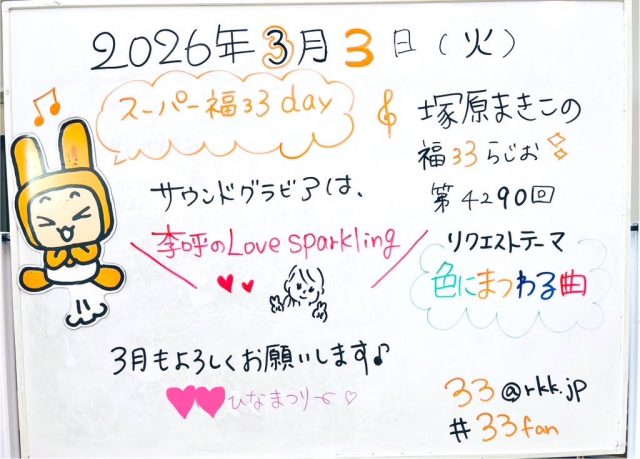 2026年3月3日（火）
スーパー福33day
塚原まきこの
福33らじお
第4290回
サウンドグラビアは、
李呼のLove sparkling
リクエストテーマ
色にまつわる曲
3月もよろしくお願いします♪
ひなまつり
33@rkk.jp
#33fan